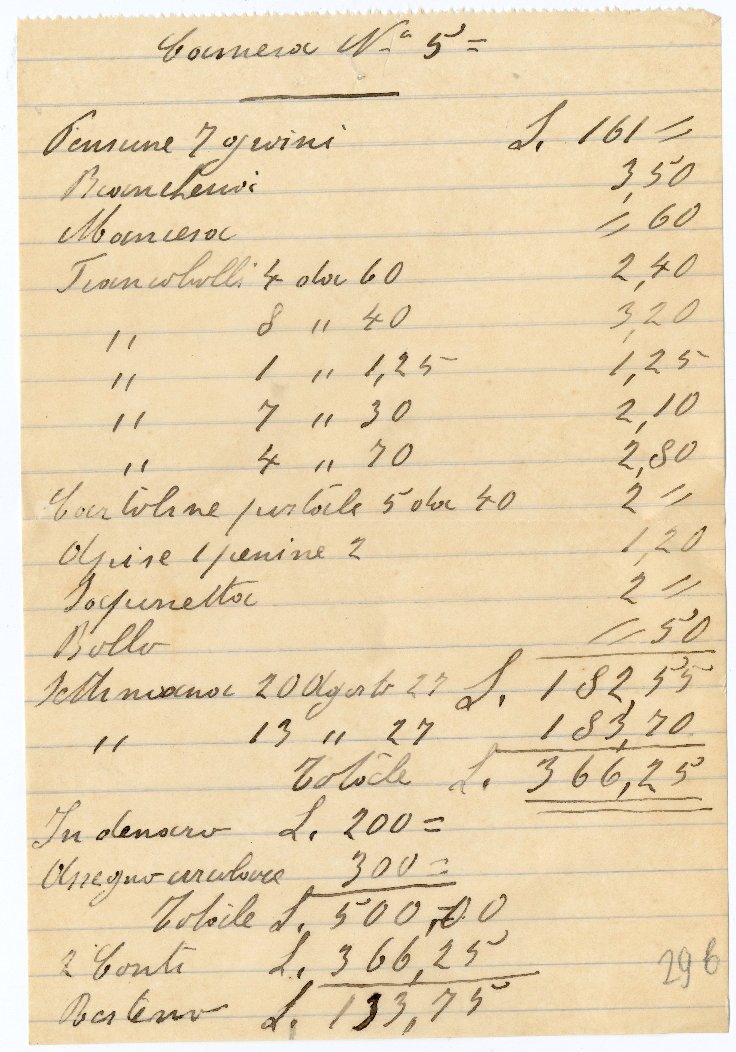 Camera N.a 5 =
Pensione 7 giorni L. 161 =
Biancheria 3,50
Mancera = 60
Francobolli 4 da 60 2,40
" 8 " 40 3,20
" 1 " 1,25 1,25
" 7 " 30 2,10
" 4 " 70 2,80
Cartoline postale 5 da 40 2 =
2 1,20
Saponetta 2 =
Bollo = 50
Settimana 20 Agosto 27 L. 182,55
" 13 " 27 183,70
Totale L. 366,25
In denaro L. 200 =
Assegno circolare 300 =
Totale L. 500,00
2 Conti L. 366,25
Restano L. 133,75
296